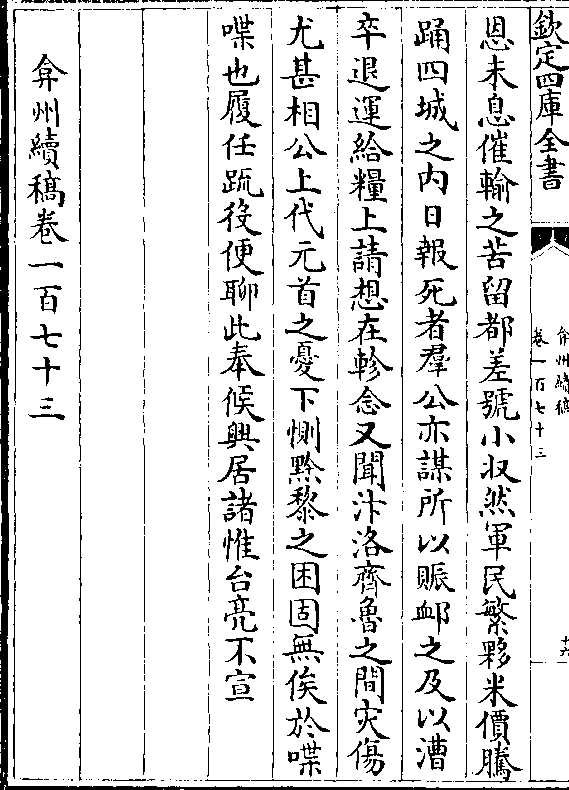 欽定四庫全書
弇州續稿
卷一百七十三
十六
恩未息催輸之苦留都差號小收然軍民繁夥米價騰
踊四城之内日報死者羣公亦謀所以賑䘏之及以漕
卒退運給糧上請想在軫念又聞汴洛齊魯之間灾傷
尤甚相公上代元首之憂下惻黔黎之困固無俟於喋
喋也履任䟽役便聊此奉候興居諸惟台亮不宣
弇州續稿卷一百七十三